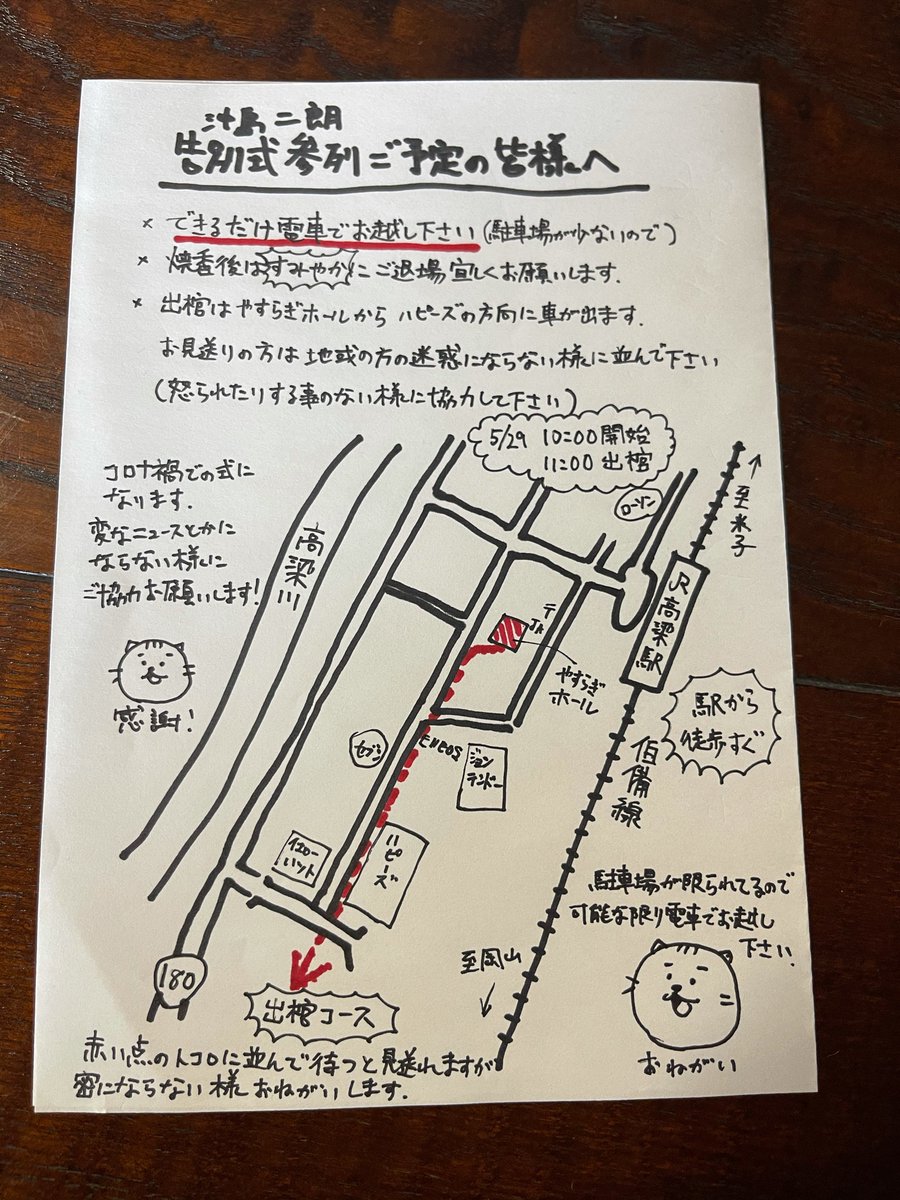 汁島二朗
告別式参列ご予定の皆様へ
× できるだけ電車でお越し下さい(駐車場が少ないので)
× 焼香後はすみやかにご退場宜しくお願いします.
× 出棺はやすらぎホールからハピーズの方向に車が出ます.
お見送りの方は地域の方の迷惑にならない様に並んで下さい
(怒られたりする事のない様に協力して下さい)
5/29 10:00開始
11:00出棺
コロナ禍での式に
なります.
変なニュースとかに
ならない様に
ご協力お願いします!
感謝!
高梁川
ローソン
至米子
JR高梁駅
〒
JA
やすらぎ
ホール
駅から
徒歩すぐ
セブン
ENEOS
ジョン
テンドー
伯備線
イエロー
ハット
ハピーズ
駐車場が限られてるので
可能な限り電車でお越し
下さい.
至岡山
180
出棺コース
おねがい
赤い点のトコロに並んで待つと見送れますが
密にならない様おねがいします.